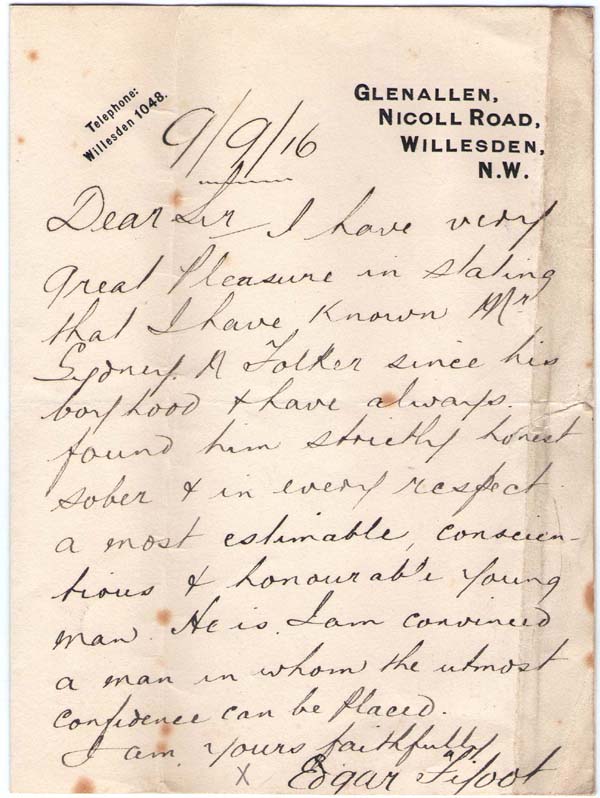 Telephone:
Willesden 1048.
GLENALLEN,
NICOLL ROAD,
WILLESDEN,
N.W.
9/9/16
Dear Sir I have very
great pleasure in stating
that I have known Mr
Sydney. R Folker since his
boyhood & have always.
found him strictly honest
sober & in every respect
a most estimable, conscien-
tious & honourable young
man. He is, I am convinced
a man in whom the utmost
confidence can be placed.
I am, yours faithfully
X Edgar Fifoot